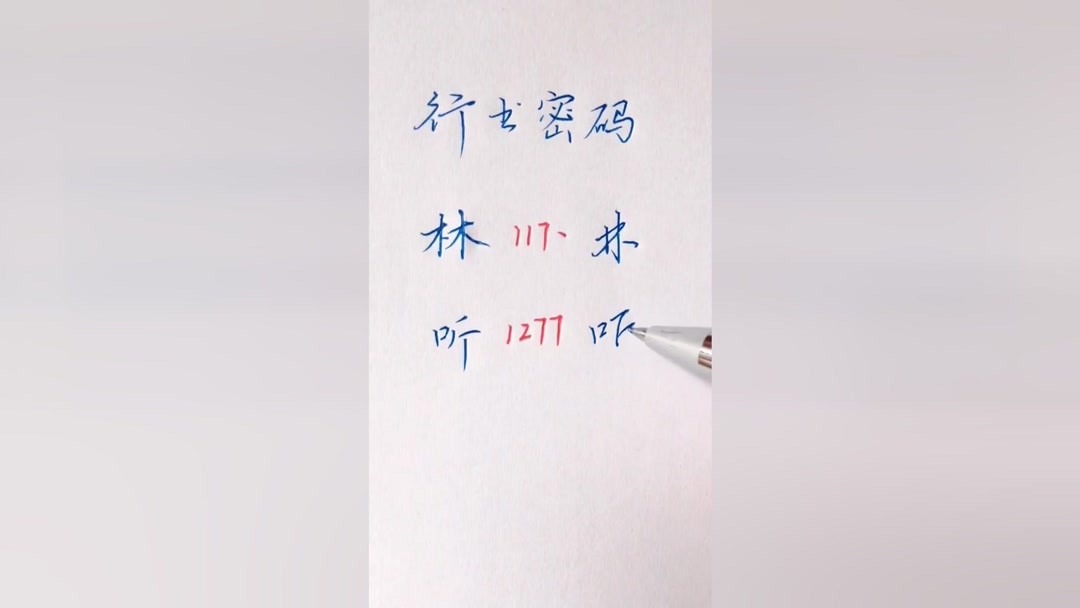 行书密码
林 117、 林
听 1277 听